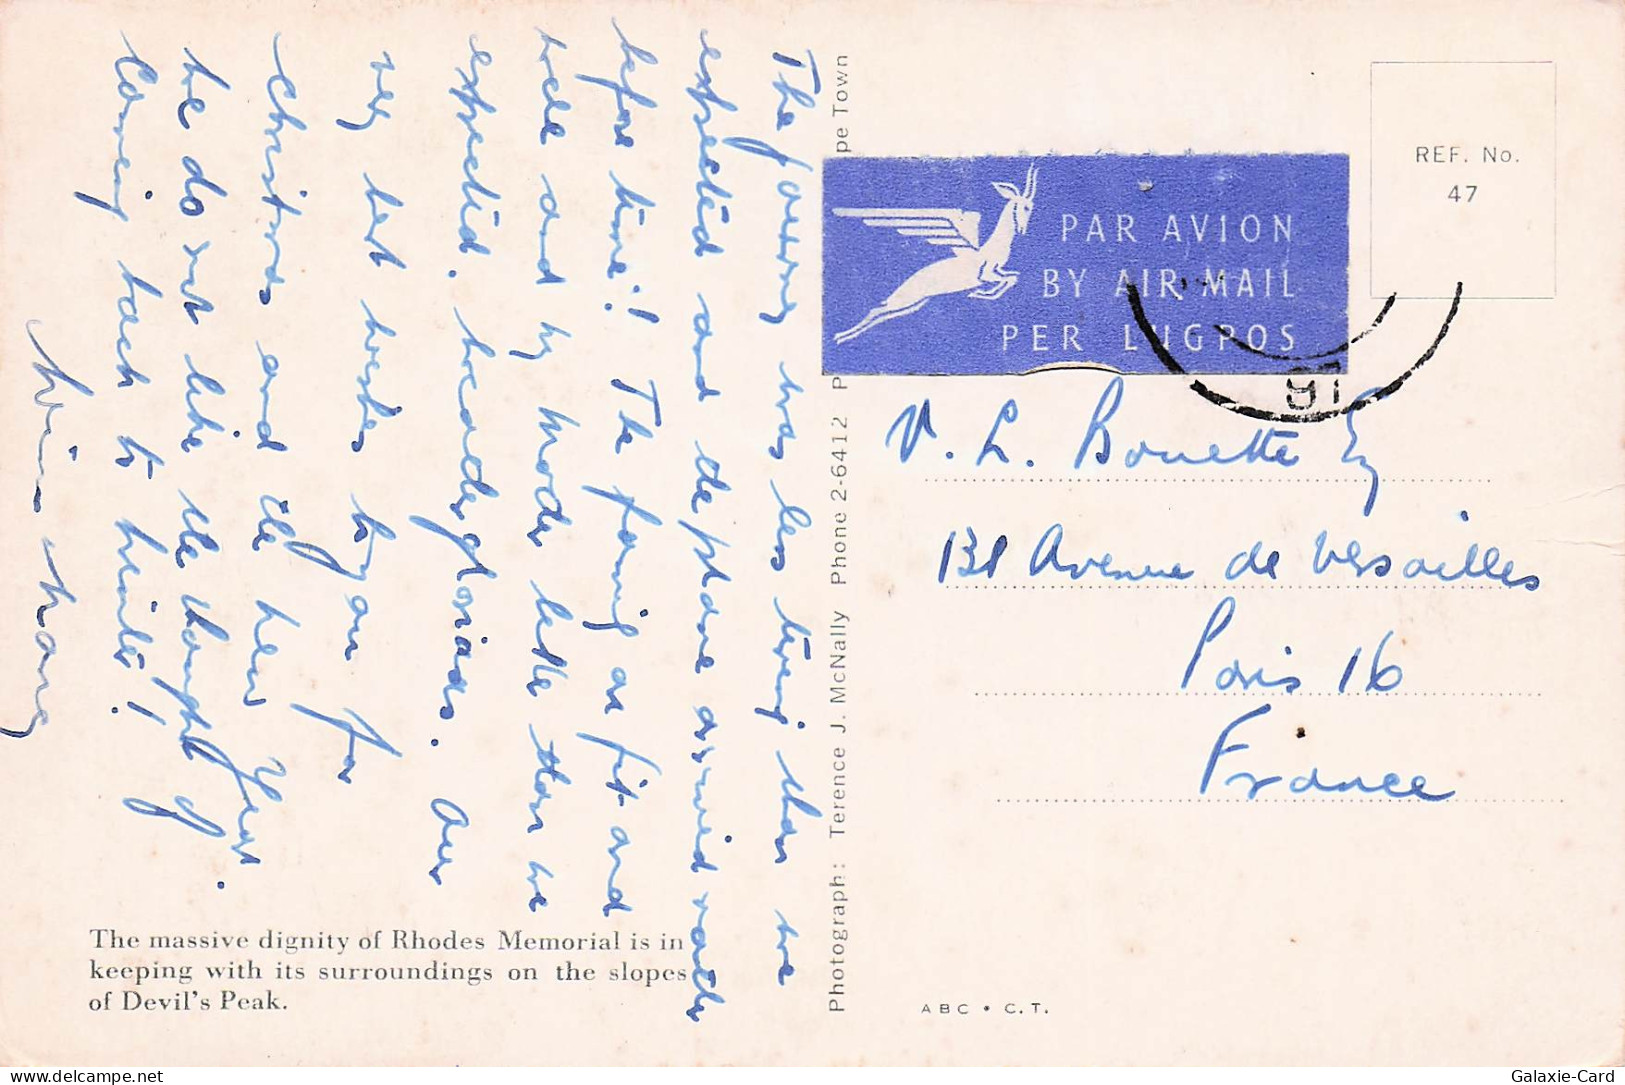 The journey was less tiring than we
expected and the plane arrived rather
before time! The family are fit and
well and my mother little than we
expected. beautiful gladiolas. Our
very best wishes to you for
Christmas and the New Year.
We do not like the thought of
coming back to winter!
The massive dignity of Rhodes Memorial is in
keeping with its surroundings on the slopes
of Devil's Peak.
Photograph: Terence J. McNally Phone 2-6412 P pe Town
PAR AVION
BY AIR MAIL
PER LUGPOS
REF. No.
47
V. L. Bouette Esq
131 Avenue de Versailles
Paris 16
France
ABC • C.T.
Galaxie-Card